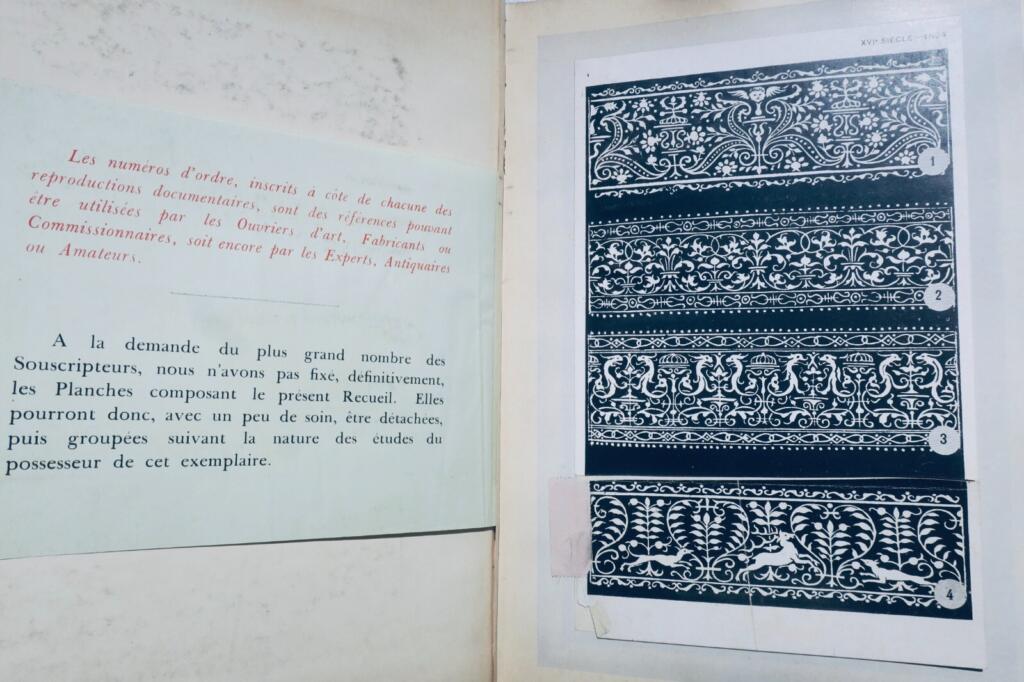 Les numéros d'ordre, inscrits à côte de chacune des
reproductions documentaires, sont des références pouvant
être utilisées par les Ouvriers d'art, Fabricants ou
Commissionnaires, soit encore par les Experts, Antiquaires
ou Amateurs.
A la demande du plus grand nombre des
Souscripteurs, nous n'avons pas fixé, définitivement,
les Planches composant le présent Recueil. Elles
pourront donc, avec un peu de soin, être détachées,
puis groupées suivant la nature des études du
possesseur de cet exemplaire.
XVIe SIÈCLE
1
2
3
4